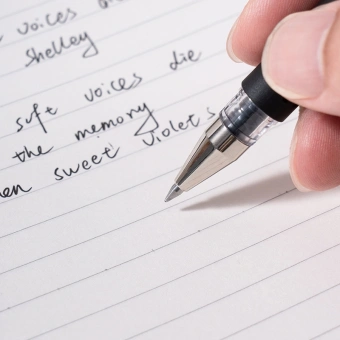 voices die
Shelley
soft voices die
the memory
en sweet violets